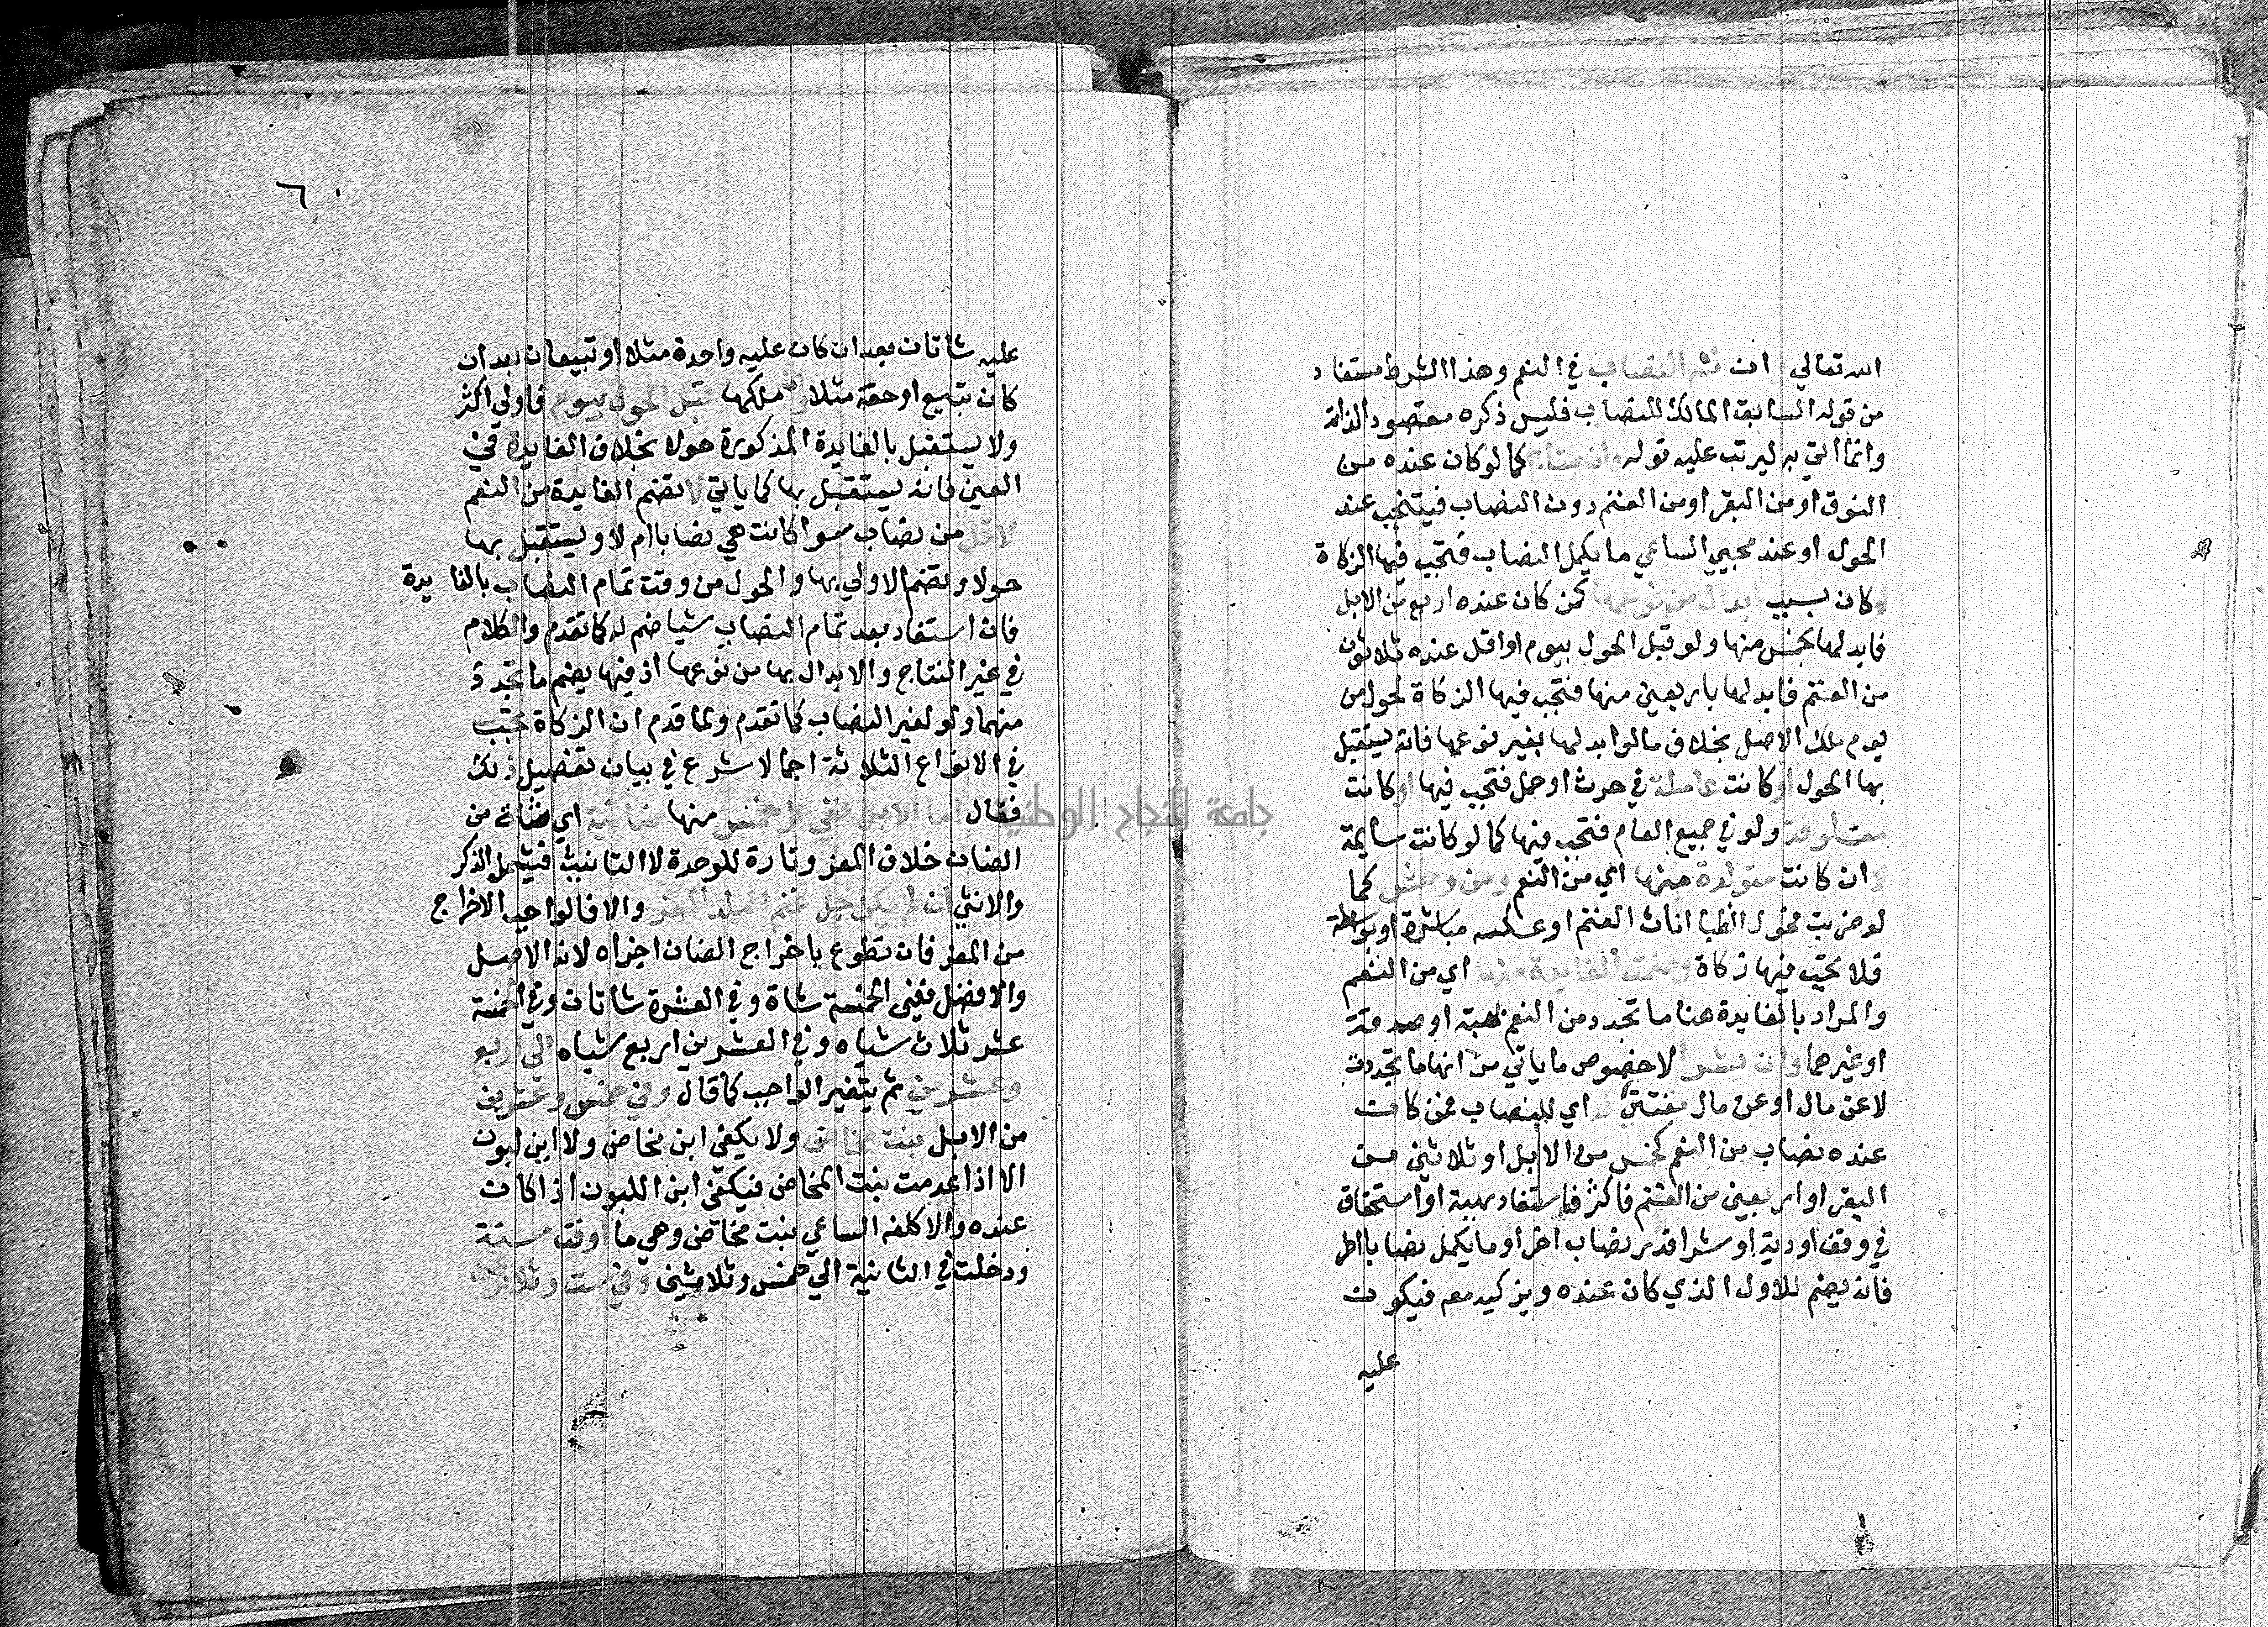 الله تعالى ان تم النصاب في النعم وهذا الشرط مستفاد
من قوله السابق المالك للنصاب فليس ذكره مقصود الذاته
وانما اتي به ليرتب عليه قوله وان بنتاج كما لو كان عنده من
النوق او من البقر او من الغنم دون النصاب فينتجب عند
الحول او عند مجيي الساعي ما يكمل النصاب فتجب فيها الزكاة
او كان بسبب ابدال من نوعها كمن كان عنده اربع من الابل
فابدلها بخمس منها ولو قبل الحول بيوم او اقل عنده ثلاثون
من الغنم فابدلها باربعين منها فتجب فيها الزكاة لحول من
يوم ملك الاصل بخلاف ما لو ابدلها بغير نوعها فانه يستقبل
بها الحول او كانت عاملة في حرث او حمل فتجب فيها او كانت
معلوفة ولو في جميع العام فتجب فيها كما لو كانت سايمة
لا ان كانت متولدة منها اي من النعم ومن وحش كما
لو ضربت فحول الظبا اناث الغنم او عكسه مباشرة او بواسطة
فلا تجب فيها زكاة وضمت الفايدة منها اي من النعم
والمراد بالفايدة هنا ما تجدد من النعم بهبة او صدقة
او غيرهما وان بشرا لا خصوص ما ياتي من انها ما تجددت
لا عن مال او عن مال مقتني له اي للنصاب فمن كانت
عنده نصاب من النعم كخمس من الابل او ثلاثين من
البقر او اربعين من الغنم فاكثر فاستفاد بهبة او استحقاق
في وقف او دية او شرا قدر نصاب اخر او ما يكمل نصابا اخر
فانه يضم للاول الذي كان عنده ويزكيه معه فيكون
عليه
٦
عليه شاتان بعد ان كان عليه واحدة مثلا او تبيعان بعد ان
كان تبيع او حقة مثلا وان ملكها قبل الحول بيوم فاولي اكثر
ولا يستقبل بالفايدة المذكورة حولا بخلاف الفايدة في
العين فانه يستقبل بها كما ياتي لا تضم الفايدة من النعم
لاقل من نصاب سوا كانت هي نصابا ام لا ويستقبل بها
حولا وتضم الاولي بها والحول من وقت تمام النصاب بالفايدة
فان استفاد بعد تمام النصاب شيا ضم له كما تقدم والكلام
في غير النتاج والابدال بها من نوعها اذ فيها يضم ما تجدد
منهما ولو لغير النصاب كما تقدم ولما قدم ان الزكاة تجب
في الانواع الثلاثة اجمالا شرع في بيان تفصيل ذلك
فقال اما الابل ففي كل خمس منها ضائنة اي شاة من
الضان خلاف المعز وتاره للوحدة لا التانيث فيشمل الذكر
والانثي ان لم يكن جل غنم البلد المعز والا فالواجب الاخراج
من المعز فان تطوع باخراج الضان اجزاه لانه الاصل
والافضل ففي الخمسة شاة وفي العشرة شاتان وفي الخمسة
عشر ثلاث شياه وفي العشرين اربع شياه الي اربع
وعشرين ثم يتغير الواجب كما قال وفي خمس وعشرين
من الابل بنت مخاض ولا يكفي ابن مخاض ولا ابن لبون
الا اذا عدمت بنت المخاض فيكفي ابن اللبون اذا كان
عنده والا كلفه الساعي بنت مخاض وهي ما اوفت سنة
ودخلت في الثانية الي خمس وثلاثين وفي ست وثلاثين
جامعة النجاح الوطنية